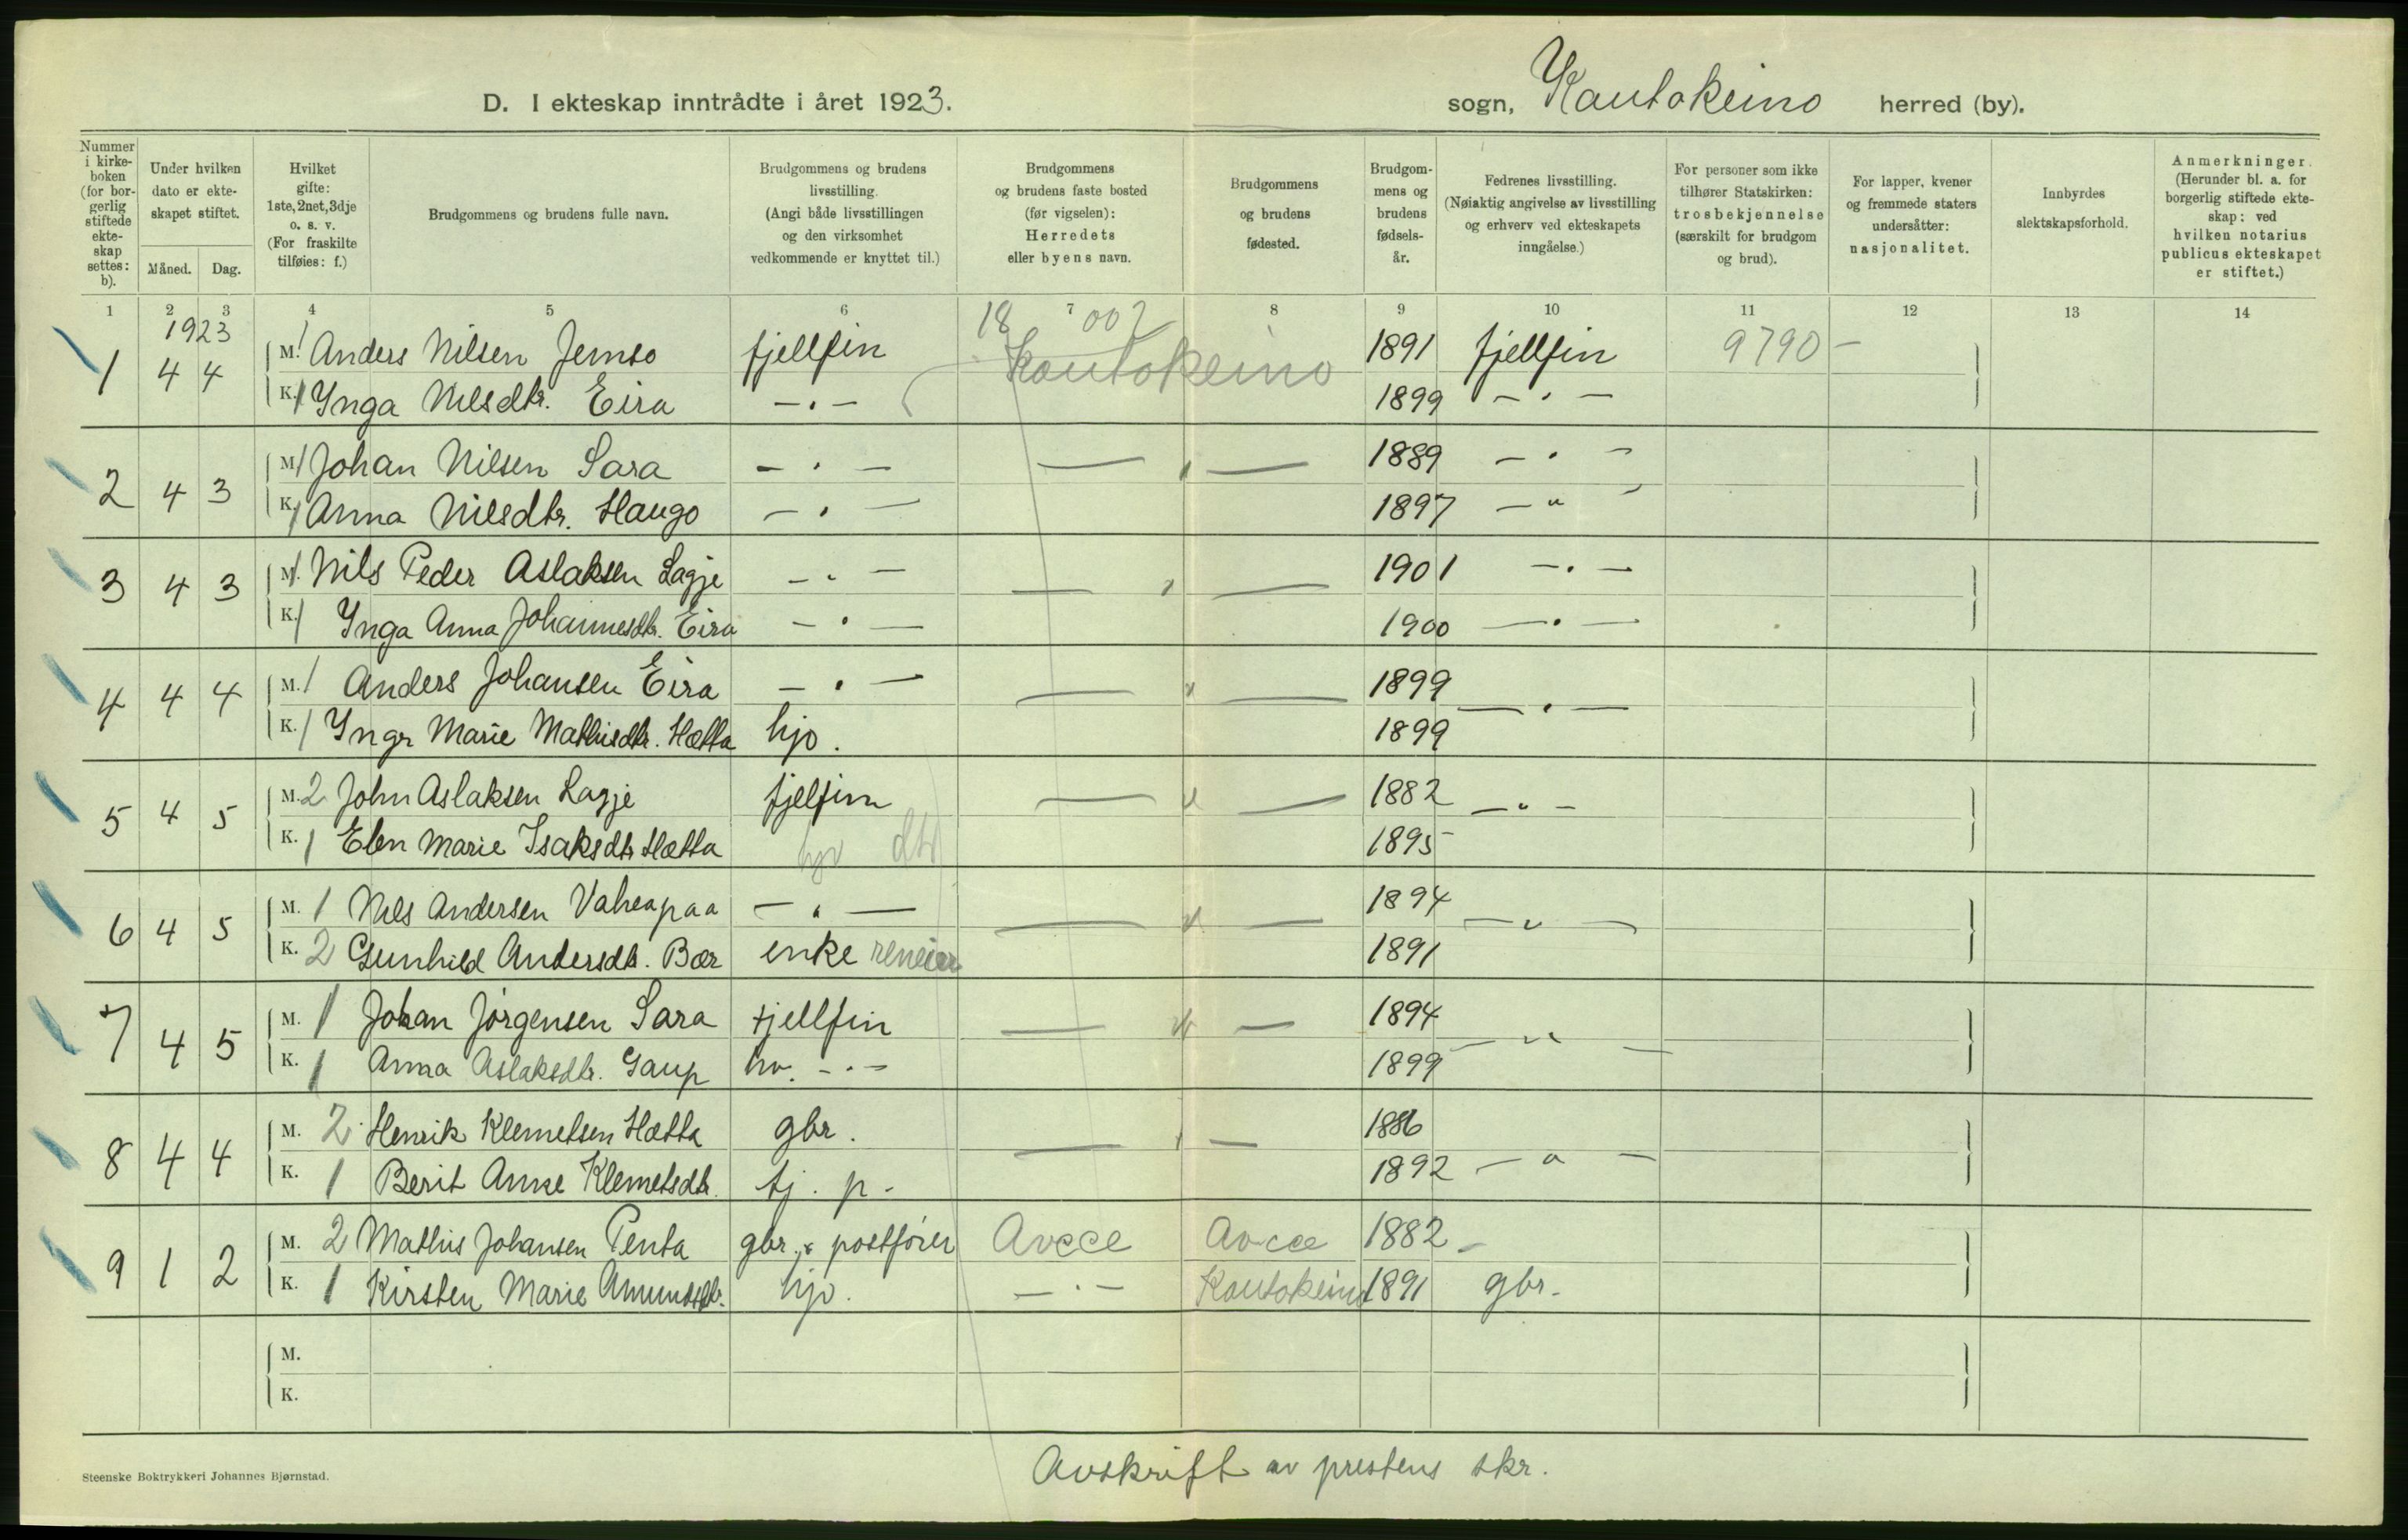 D. I ekteskap inntrådte i året 1923.
sogn, Kautokeino herred (by).
Nummer i kirkeboken (for borgerlig stiftede ekteskap settes: b).
Under hvilken dato er ekteskapet stiftet.
Måned. Dag.
Hvilket gifte: 1ste, 2net, 3dje o. s. v. (For fraskilte tilføies: f.)
Brudgommens og brudens fulle navn.
Brudgommens og brudens livsstilling. (Angi både livsstillingen og den virksomhet vedkommende er knyttet til.)
Brudgommens og brudens faste bosted (før vigselen): Herredets eller byens navn.
Brudgommens og brudens fødested.
Brudgommens og brudens fødselsår.
Fedrenes livsstilling. (Nøiaktig angivelse av livsstilling og erhverv ved ekteskapets inngåelse.)
For personer som ikke tilhører Statskirken: trosbekjennelse (særskilt for brudgom og brud).
For lapper, kvener og fremmede staters undersåtter: nasjonalitet.
Innbyrdes slektskapsforhold.
Anmerkninger. (Herunder bl. a. for borgerlig stiftede ekteskap: ved hvilken notarius publicus ekteskapet er stiftet.)
1 2 3 4 5 6 7 8 9 10 11 12 13 14
1923 18 002
1 4 4 M. 1 Anders Nilsen Jemso fjellfin Kautokeino 1891 fjellfin 9790 -
K. 1 Ynga Nilsdtr. Eira - " - 1899 - " -
2 4 3 M. 1 Johan Nilsen Sara - " - — " — 1889 - " -
K. 1 Anna Nilsdtr. Haugo - " - 1897 - " -
3 4 3 M. 1 Nils Peder Aslaksen Lagje - " - — " — 1901 - " -
K. 1 Ynga Anna Johannesdtr. Eira - " - 1900 - " -
4 4 4 M. 1 Anders Johansen Eira - " - — " — 1899 - " -
K. 1 Yngr Marie Mathisdtr. Hætta hjo. 1899
5 4 5 M. 2 John Aslaksen Lagje fjelfin — " — 1882 - " -
K. 1 Elen Marie Isaksdtr Hætta hjv dtr 1895
6 4 5 M. 1 Nils Andersen Vaheapaa - " - — " — 1894 - " -
K. 2 Gunhild Andersdtr. Bær enke reneier 1891
7 4 5 M. 1 Johan Jørgensen Sara fjellfin — " — 1894 - " -
K. 1 Anna Aslaksdtr. Gaup hv. - " - 1899
8 4 4 M. 2 Henrik Klemetsen Hætta gbr. — " — 1886
K. 1 Berit Anne Klemetsdtr. tj. p. 1892 - " -
9 1 2 M. 2 Mathis Johansen Penta gbr. & postfører Avcce Avcce 1882 -
K. 1 Kirsten Marie Amundsdtr. hjo. - " - Kautokeino 1891 gbr.
M.
K.
Steenske Boktrykkeri Johannes Bjørnstad.
Avskrift av prestens skr.